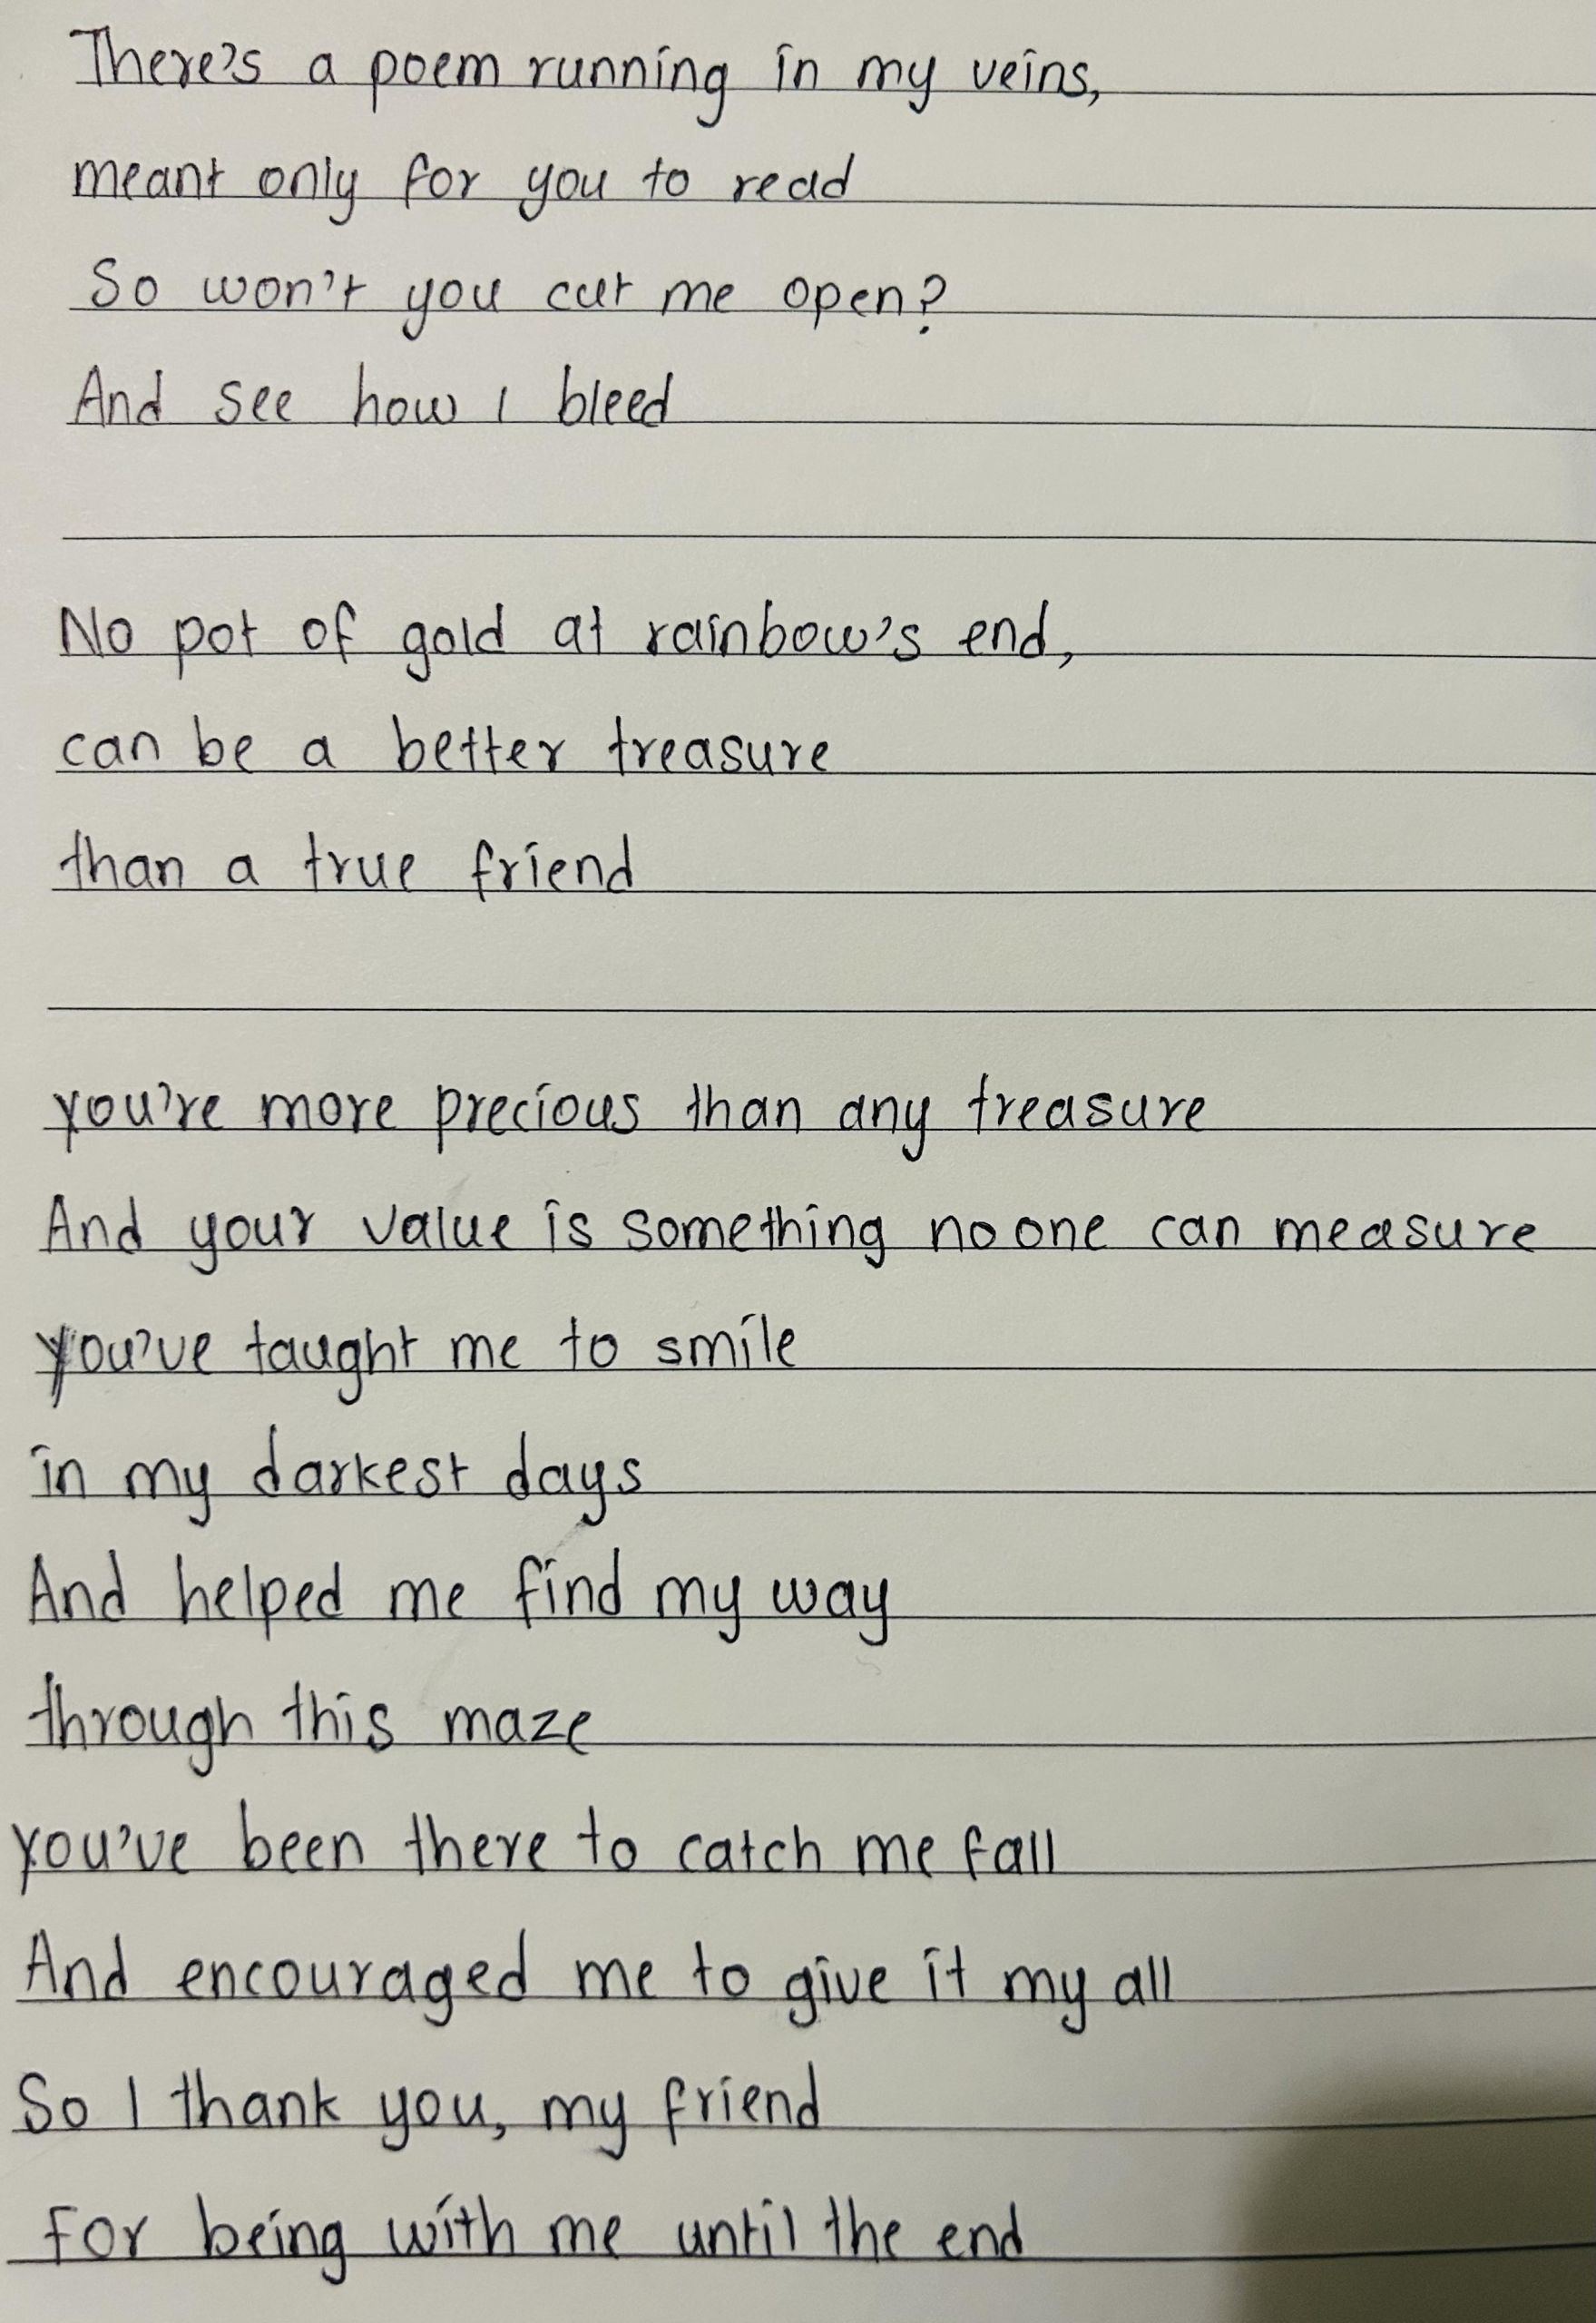 There's a poem running in my veins,
meant only for you to read
So won't you cut me open?
And see how I bleed
No pot of gold at rainbow's end,
can be a better treasure
than a true friend
you're more precious than any treasure
And your value is something no one can measure
you've taught me to smile
in my darkest days
And helped me find my way
through this maze
you've been there to catch me fall
And encouraged me to give it my all
So I thank you, my friend
for being with me until the end